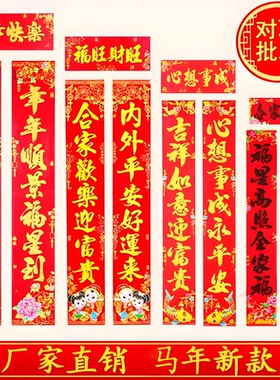 快樂
對
批
福旺財旺
心想事成
年年順景福星到
合家歡樂迎富貴
內外平安好運來
吉祥如意迎富貴
心想事成永平安
福星高照全家福
厂家直销 马年新款